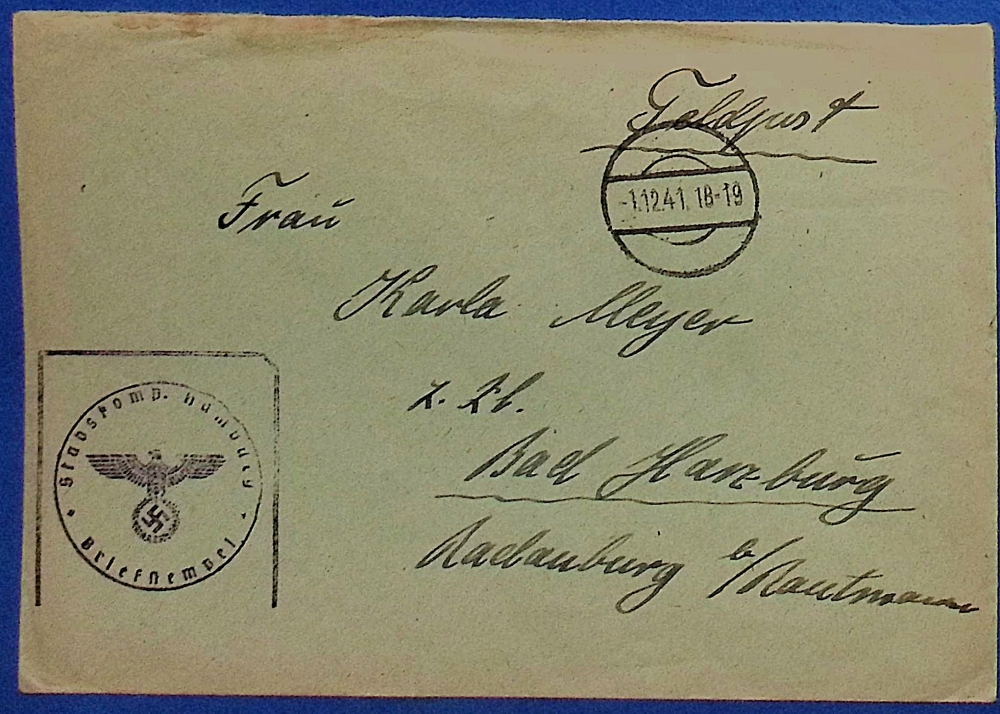 Feldpost
-1.12.41. 18-19
Frau
Karla Meyer
z. Zt.
Bad Harzburg
Radauburg b/Rautmann
Stabskomp. Hamburg
Briefstempel